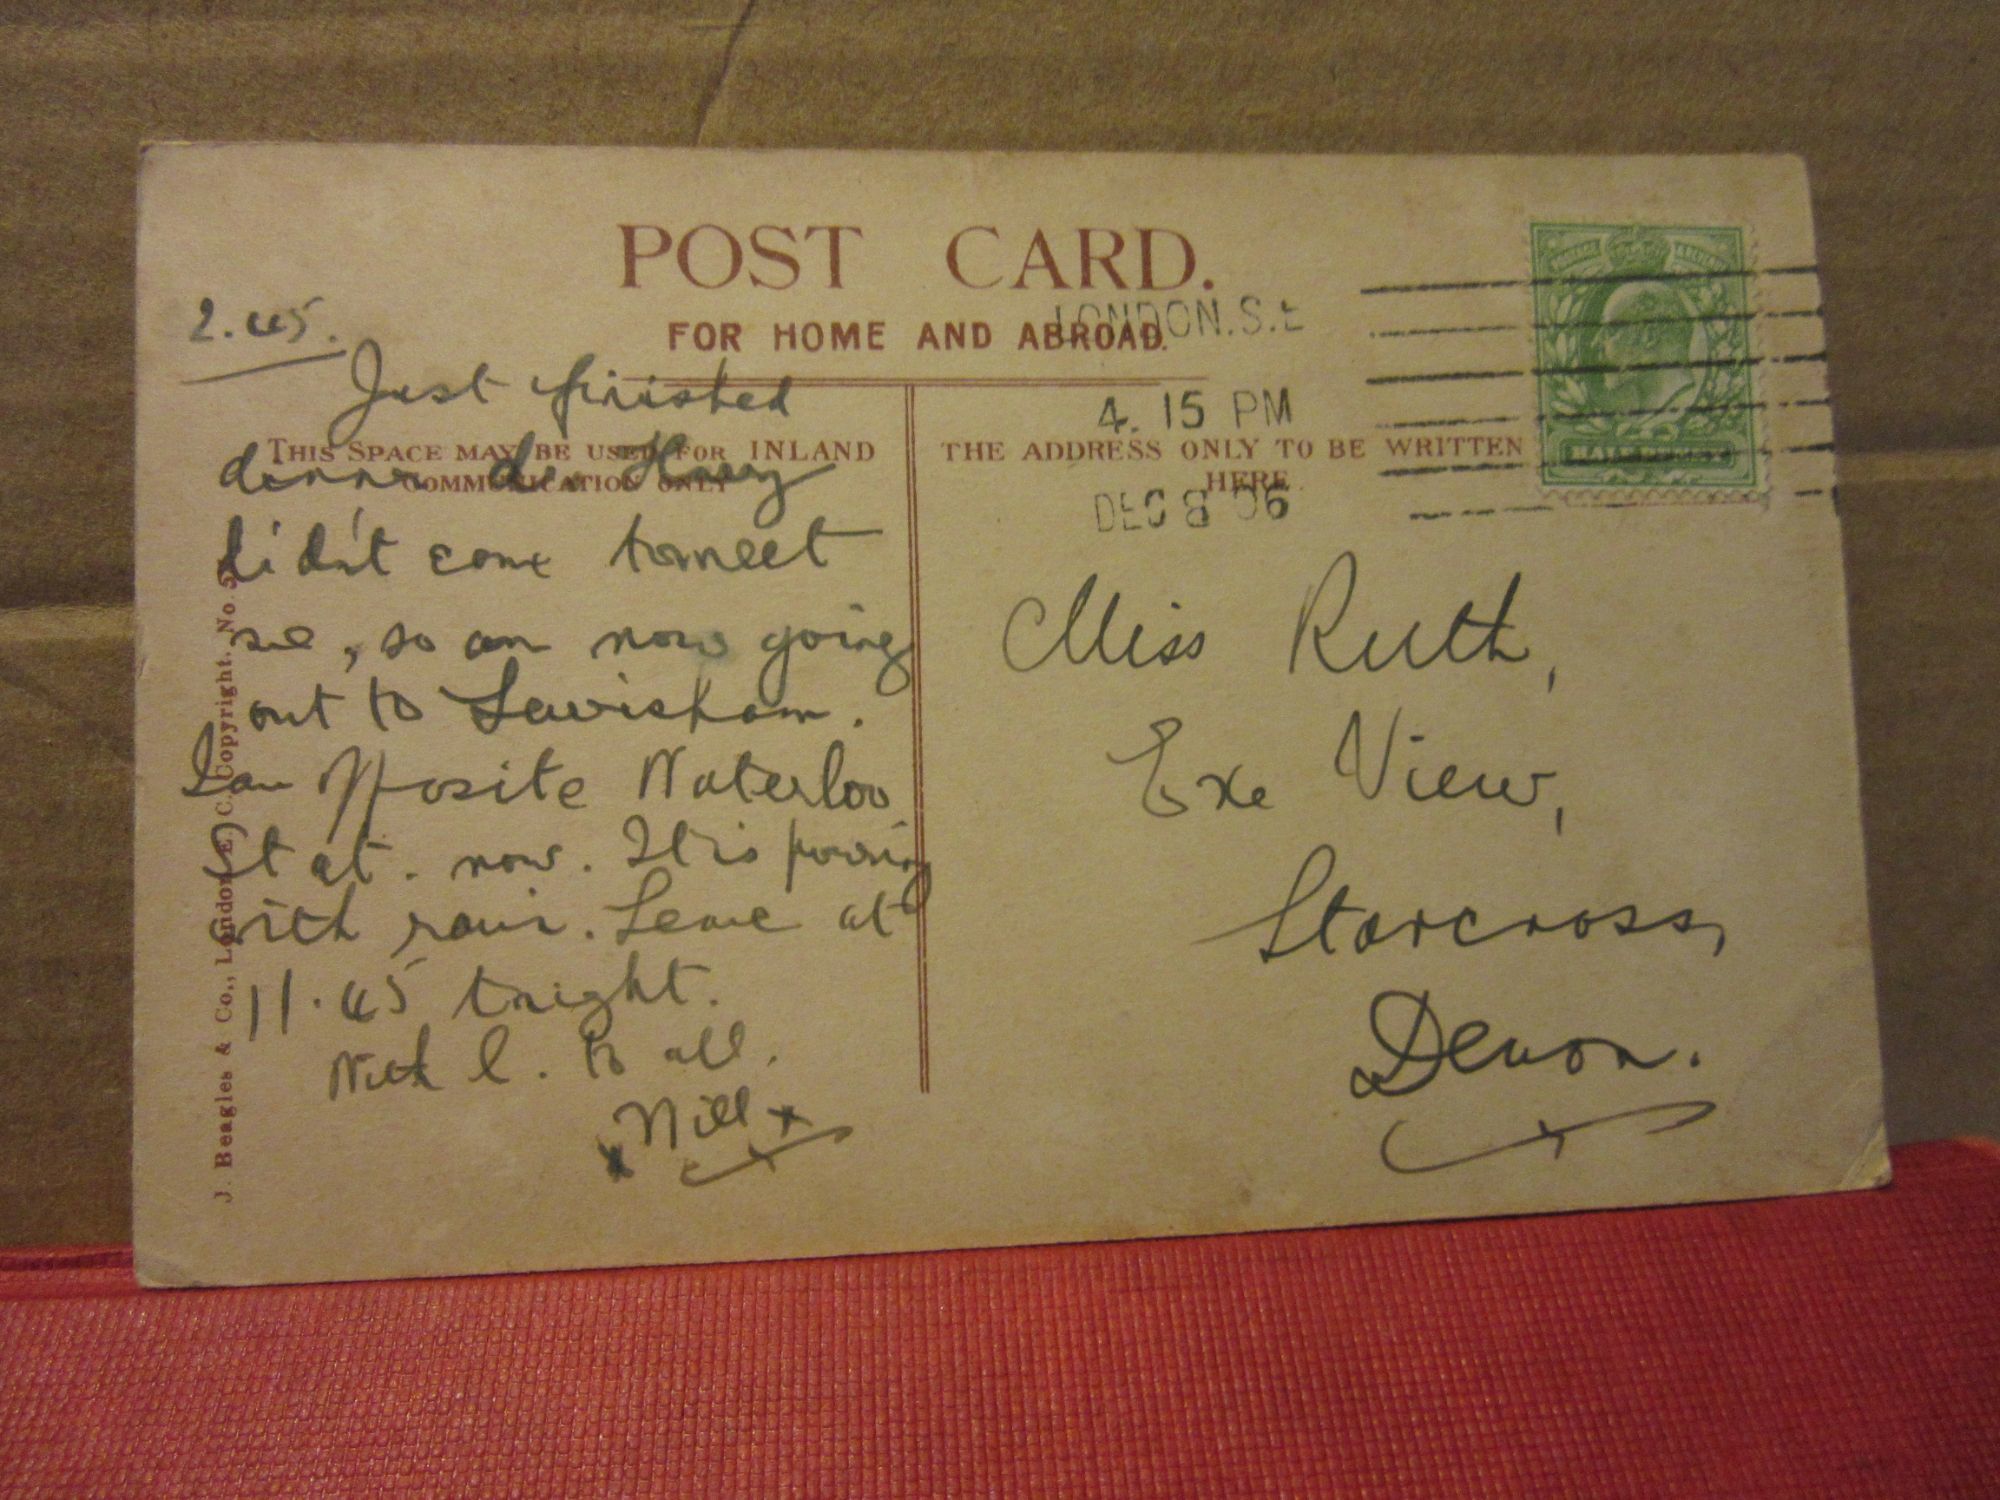 POST CARD.
FOR HOME AND ABROAD.
LONDON.S.E
4. 15 PM
DEC 8 06
THIS SPACE MAY BE USED FOR INLAND
COMMUNICATION ONLY
THE ADDRESS ONLY TO BE WRITTEN
HERE.
2.45.
Just finished
dinner
didn't come to meet
me, so am now going
out to Lewisham.
I am opposite Waterloo
Stat. now. It is pouring
with rain. Leave at
11.45 tonight.
With l. to all.
x Will x
x
Miss Ruth,
Exe View,
Starcross,
Devon.
J. Beagles & Co., London, E.C. Copyright. No